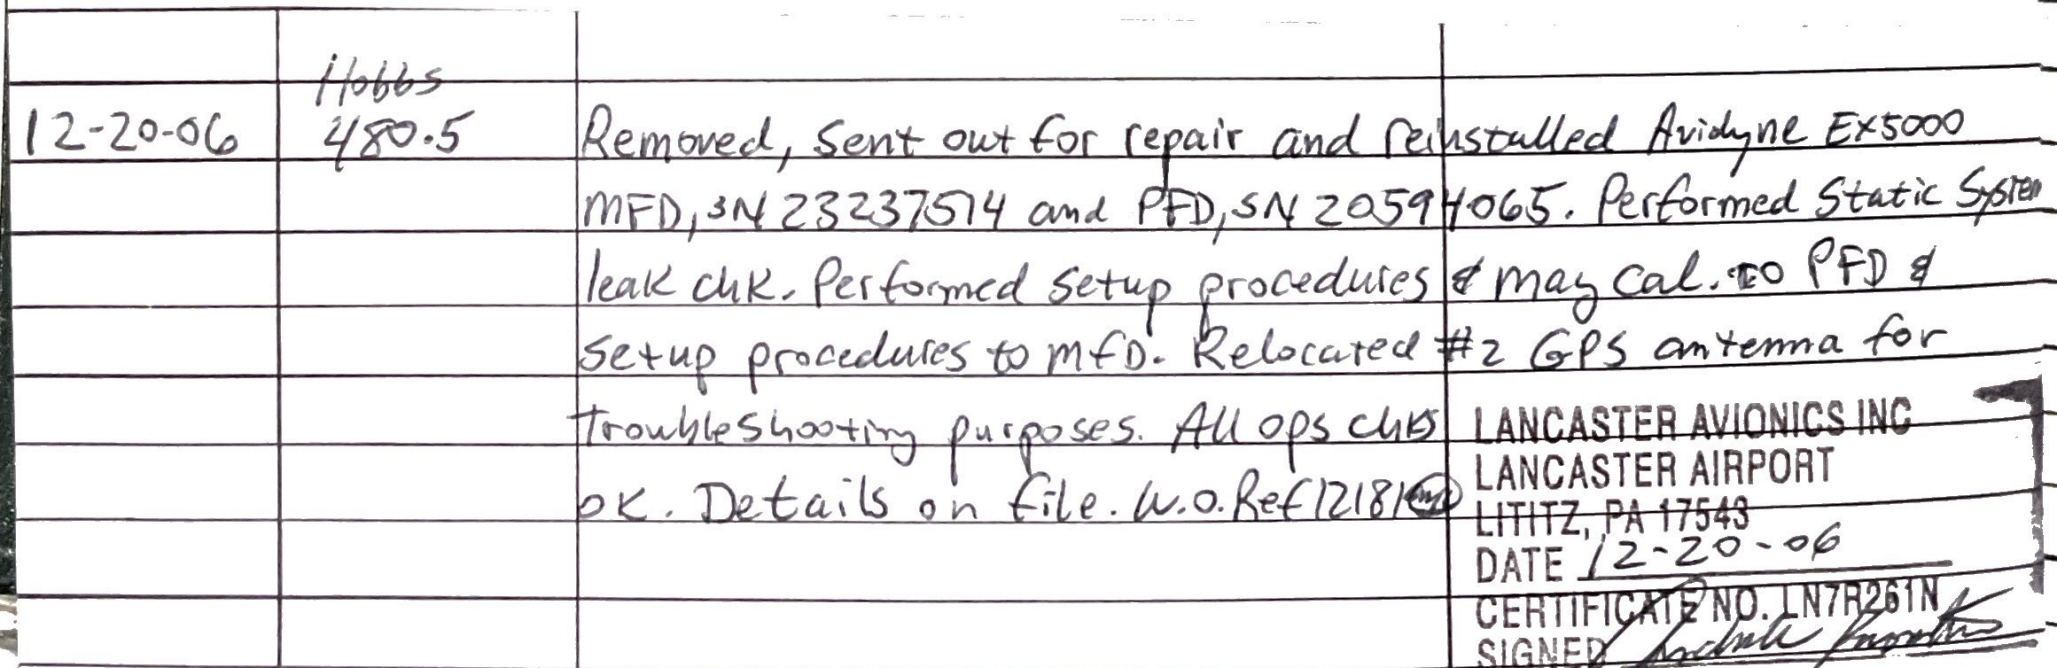 Hobbs
12-20-06 480.5 Removed, sent out for repair and reinstalled Avidyne EX5000
MFD, SN 23237514 and PFD, SN 20594065. Performed Static System
leak chk. Performed setup procedures & mag cal. to PFD &
setup procedures to MFD. Relocated #2 GPS antenna for
troubleshooting purposes. All ops chks
ok. Details on file. W.O. Ref 12181
LANCASTER AVIONICS INC
LANCASTER AIRPORT
LITITZ, PA 17543
DATE 12-20-06
CERTIFICATE NO. LN7R261N
SIGNED